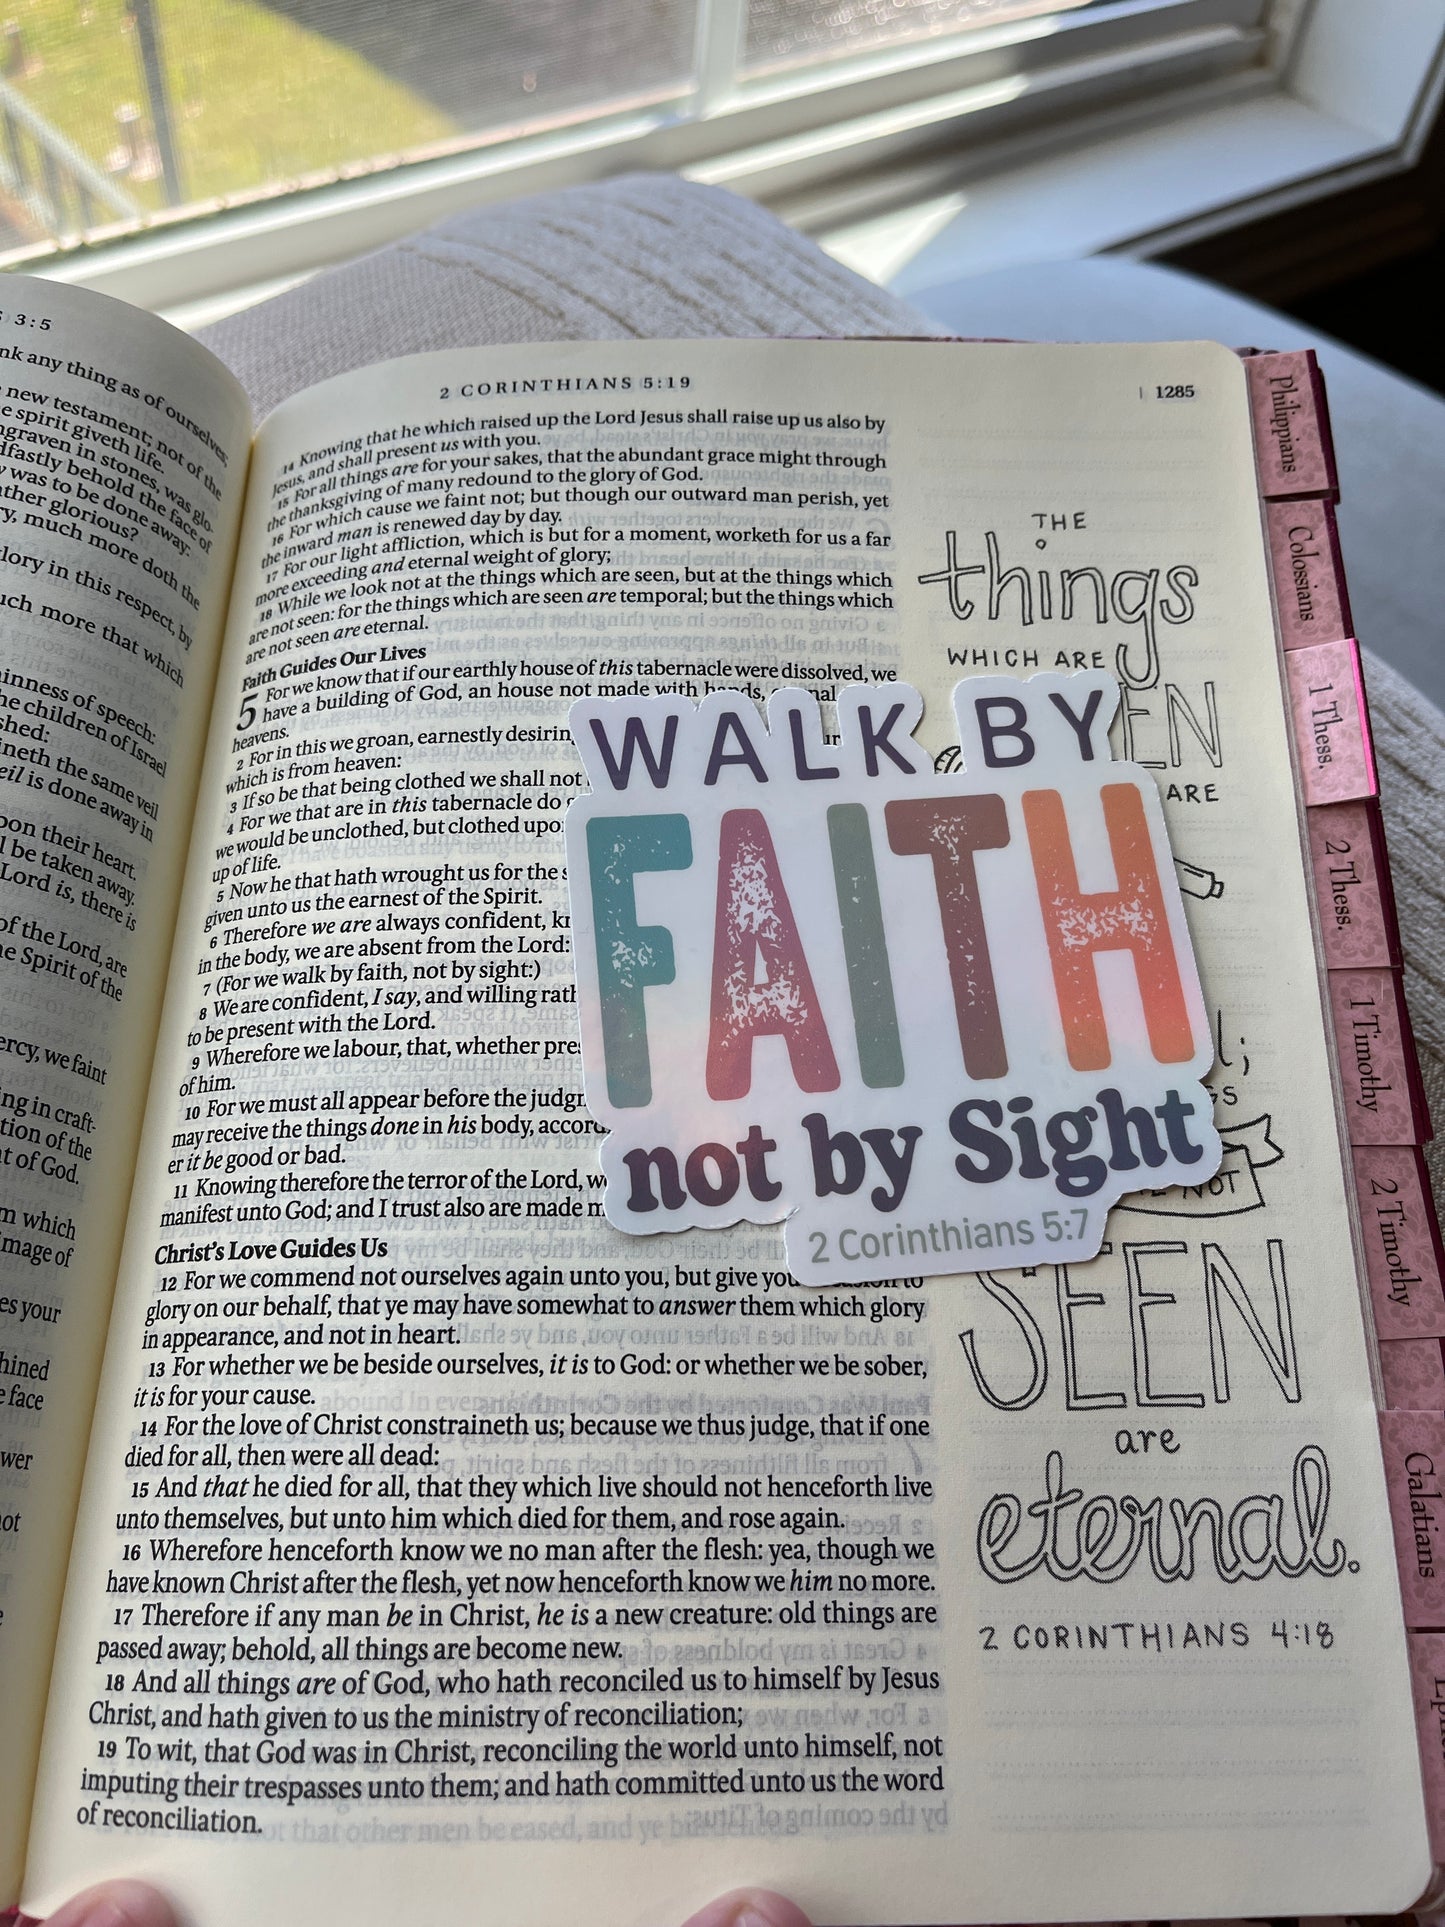 3:5
nk any thing as of ourselves;
new testament; not of the
e spirit giveth life.
ngraven in stones, was glo-
dfastly behold the face of
was to be done away:
ather glorious?
ry, much more doth the
lory in this respect, by
uch more that which
ainness of speech:
he children of Israel
shed:
ineth the same veil
eil is done away in
pon their heart.
l be taken away.
Lord is, there is
of the Lord, are
he Spirit of the
ercy, we faint
ng in craft-
tion of the
t of God.
m which
mage of
es your
hined
e face
wer
ot
2 CORINTHIANS 5:19
1285
14 Knowing that he which raised up the Lord Jesus shall raise up us also by
Jesus, and shall present us with you.
15 For all things are for your sakes, that the abundant grace might through
the thanksgiving of many redound to the glory of God.
16 For which cause we faint not; but though our outward man perish, yet
the inward man is renewed day by day.
17 For our light affliction, which is but for a moment, worketh for us a far
more exceeding and eternal weight of glory;
18 While we look not at the things which are seen, but at the things which
are not seen: for the things which are seen are temporal; but the things which
are not seen are eternal.
Faith Guides Our Lives
5 For we know that if our earthly house of this tabernacle were dissolved, we
have a building of God, an house not made with hands,
heavens.
2 For in this we groan, earnestly desirin
which is from heaven:
3 If so be that being clothed we shall not
4 For we that are in this tabernacle do
we would be unclothed, but clothed upo
up of life.
5 Now he that hath wrought us for the s
given unto us the earnest of the Spirit.
6 Therefore we are always confident, kn
in the body, we are absent from the Lord:
7 (For we walk by faith, not by sight:)
8 We are confident, I say, and willing rath
to be present with the Lord.
9 Wherefore we labour, that, whether pres
of him.
10 For we must all appear before the judgm
may receive the things done in his body, accord
er it be good or bad.
11 Knowing therefore the terror of the Lord, we
manifest unto God; and I trust also are made m
Christ's Love Guides Us
12 For we commend not ourselves again unto you, but give you to
glory on our behalf, that ye may have somewhat to answer them which glory
in appearance, and not in heart.
13 For whether we be beside ourselves, it is to God: or whether we be sober,
it is for your cause.
14 For the love of Christ constraineth us; because we thus judge, that if one
died for all, then were all dead:
15 And that he died for all, that they which live should not henceforth live
unto themselves, but unto him which died for them, and rose again.
16 Wherefore henceforth know we no man after the flesh: yea, though we
have known Christ after the flesh, yet now henceforth know we him no more.
17 Therefore if any man be in Christ, he is a new creature: old things are
passed away; behold, all things are become new.
18 And all things are of God, who hath reconciled us to himself by Jesus
Christ, and hath given to us the ministry of reconciliation;
19 To wit, that God was in Christ, reconciling the world unto himself, not
imputing their trespasses unto them; and hath committed unto us the word
of reconciliation.
WALK BY
FAITH
not by Sight
2 Corinthians 5:7
THE
things
WHICH ARE
EN
ARE
l;
GS
NOT
SEEN
are
eternal.
2 CORINTHIANS 4:18
Philippians
Colossians
1 Thess.
2 Thess.
1 Timothy
2 Timothy
Galatians